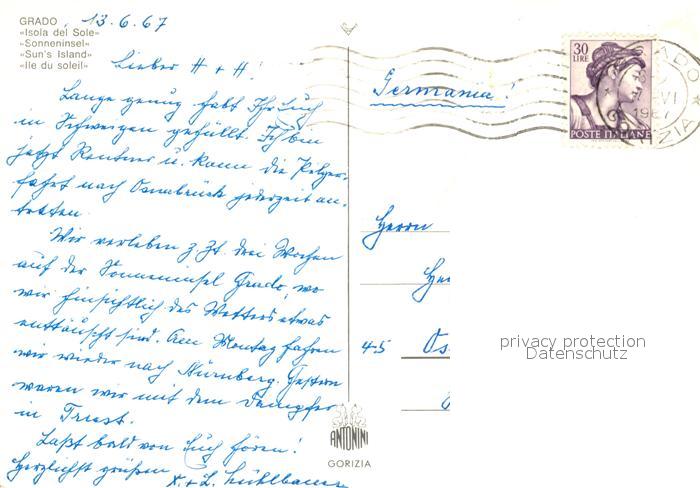 GRADO 13.6.67
«Isola del Sole»
«Sonneninsel»
«Sun's Island»
«Ile du soleil»
Lieber H + H!
Lange genug habt Ihr Euch
in Schweigen gehüllt. Ich bin
jetzt Rentner u. kann die Pilger-
fahrt nach Osnabrück jederzeit an-
treten.
Wir verleben z. Zt. drei Wochen
auf der Sonneninsel Grado, wo
wir hinsichtlich des Wetters etwas
enttäuscht sind. Am Montag fahren
wir wieder nach Nürnberg. Gestern
waren wir mit dem Dampfer
in Triest.
Laßt bald von Euch hören!
Herzlichst grüßen
K. + L. Lühlbauer
Germania!
30
LIRE
POSTE ITALIANE
Herrn
He
45 Os
privacy protection
Datenschutz
ANTONINI
GORIZIA